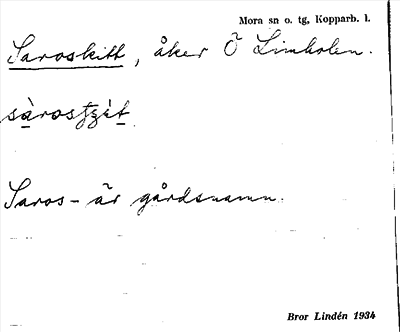 Mora sn o. tg, Kopparb. l.
Saroskitt, åker Ö Limholen.
Saros- är gårdsnamn.
Bror Lindén 1934